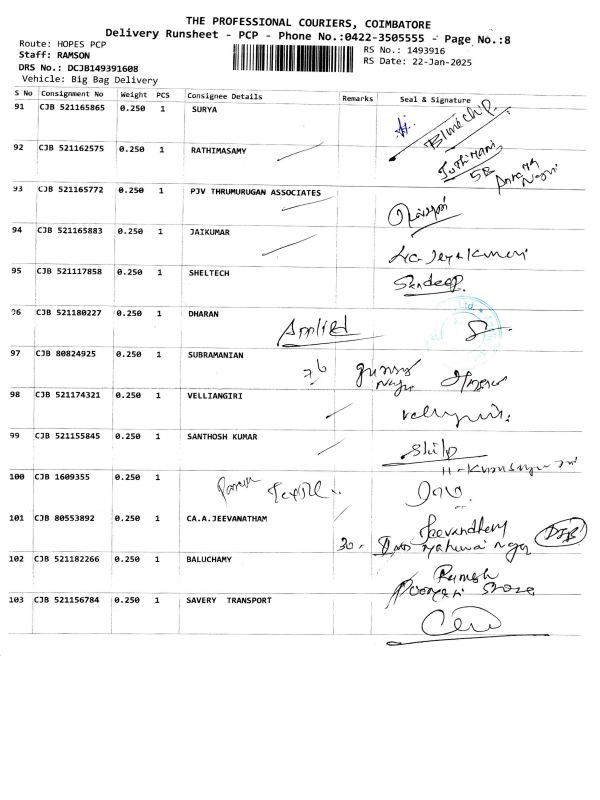 THE PROFESSIONAL COURIERS, COIMBATORE
Delivery Runsheet - PCP - Phone No.:0422-3505555 - Page No.:8
Route: HOPES PCP
RS No.: 1493916
Staff: RAMSON
RS Date: 22-Jan-2025
DRS No.: DCJB149391608
Vehicle: Big Bag Delivery
S No Consignment No Weight PCS Consignee Details Remarks Seal & Signature
91 CJB 521165865 0.250 1 SURYA
92 CJB 521162575 0.250 1 RATHIMASAMY
93 CJB 521165772 0.250 1 PJV THRUMURUGAN ASSOCIATES
94 CJB 521165883 0.250 1 JAIKUMAR
95 CJB 521117858 0.250 1 SHELTECH Sandeep
96 CJB 521180227 0.250 1 DHARAN
Applied
97 CJB 80824925 0.250 1 SUBRAMANIAN
76
98 CJB 521174321 0.250 1 VELLIANGIRI
99 CJB 521155845 0.250 1 SANTHOSH KUMAR
100 CJB 1609355 0.250 1
101 CJB 80553892 0.250 1 CA.A.JEEVANATHAM
30
102 CJB 521182266 0.250 1 BALUCHAMY Ramesh
103 CJB 521156784 0.250 1 SAVERY TRANSPORT